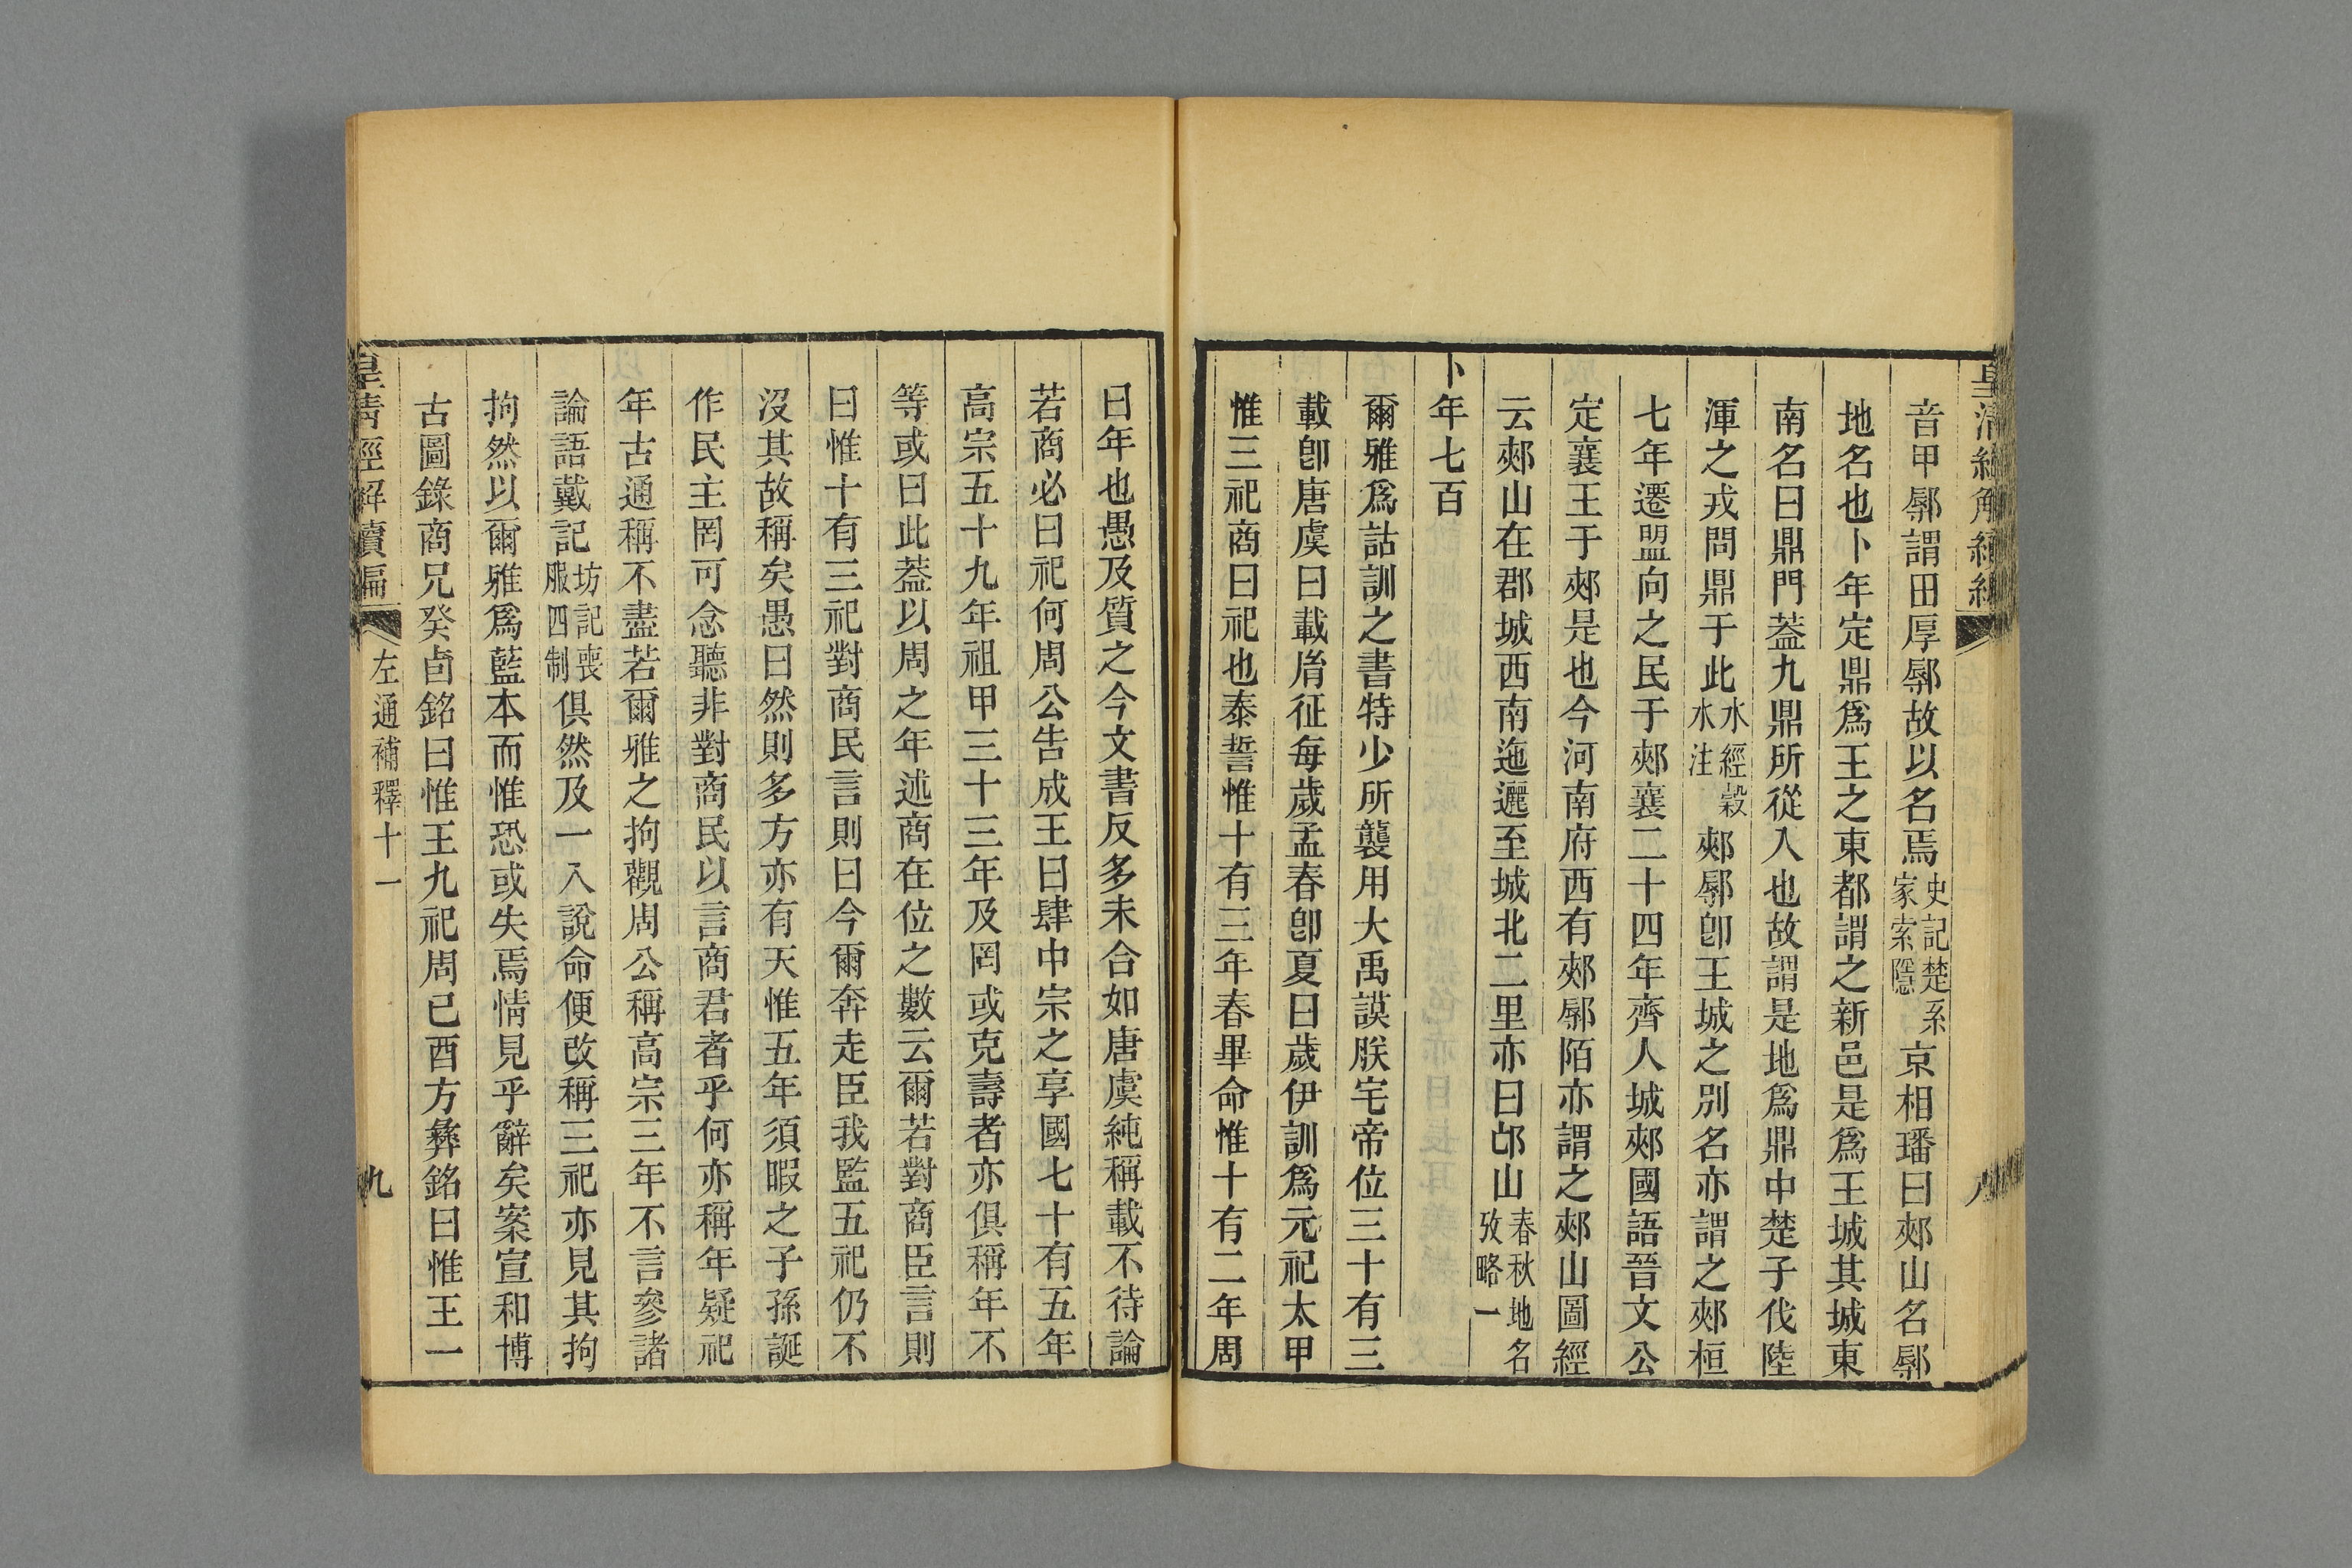 皇清經解續編
八
音甲鄏謂田厚鄏故以名焉史記楚系家索隱京相璠曰郟山名鄏
地名也卜年定鼎爲王之東都謂之新邑是爲王城其城東
南名曰鼎門蓋九鼎所從入也故謂是地爲鼎中楚子伐陸
渾之戎問鼎于此水經穀水注郟鄏卽王城之別名亦謂之郟桓
七年遷盟向之民于郟襄二十四年齊人城郟國語晉文公
定襄王于郟是也今河南府西有郟鄏陌亦謂之郟山圖經
云郟山在郡城西南迤邐至城北二里亦曰邙山春秋地名攷略一
卜年七百
爾雅爲詁訓之書特少所襲用大禹謨朕宅帝位三十有三
載卽唐虞曰載㣧征每歲孟春卽夏曰歲伊訓爲元祀太甲
惟三祀商曰祀也泰誓惟十有三年春畢命惟十有二年周
曰年也愚及質之今文書反多未合如唐虞純稱載不待論
若商必曰祀何周公告成王曰肆中宗之享國七十有五年
高宗五十九年祖甲三十三年及罔或克壽者亦俱稱年不
等或曰此蓋以周之年述商在位之數云爾若對商臣言則
曰惟十有三祀對商民言則曰今爾奔走臣我監五祀仍不
沒其故稱矣愚曰然則多方亦有天惟五年須暇之子孫誕
作民主罔可念聽非對商民以言商君者乎何亦稱年疑祀
年古通稱不盡若爾雅之拘觀周公稱高宗三年不言參諸
論語戴記坊記喪服四制俱然及一入說命便改稱三祀亦見其拘
拘然以爾雅爲藍本而惟恐或失焉情見乎辭矣案宣和博
古圖錄商兄癸卣銘曰惟王九祀周己酉方彝銘曰惟王一
皇清經解續編
左通補釋十一
九